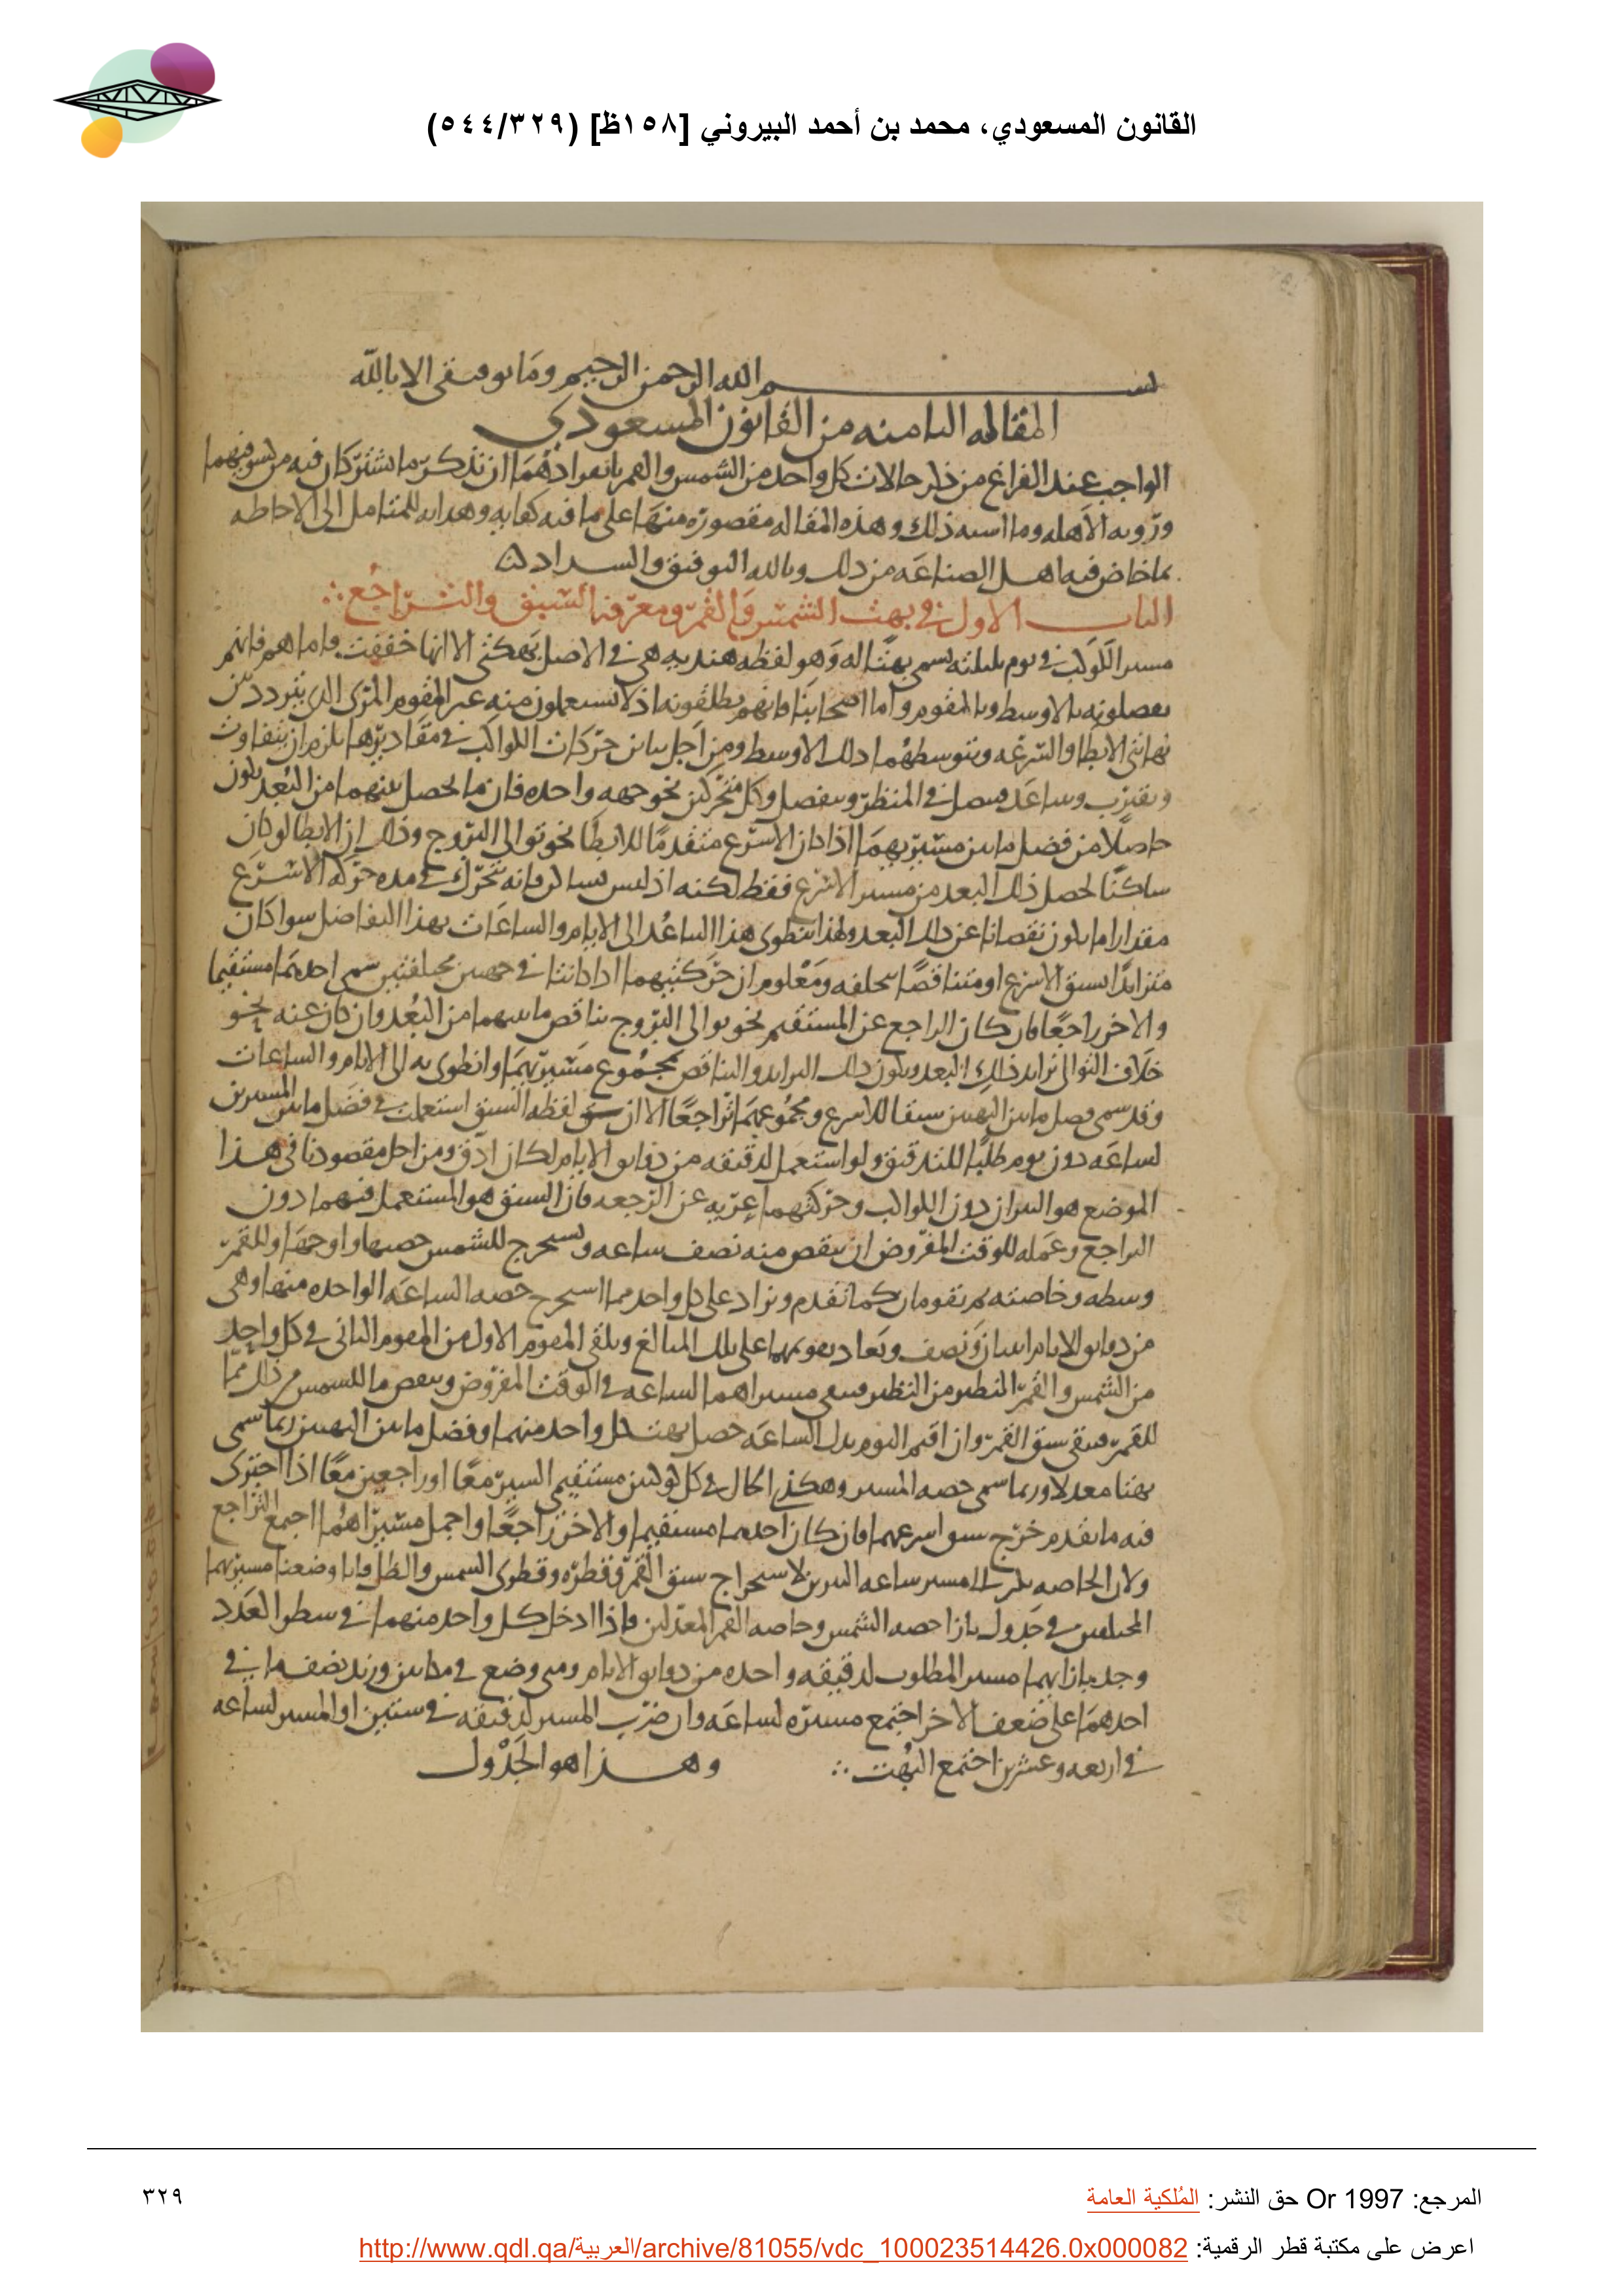 القانون المسعودي، محمد بن أحمد البيروني [١٥٨ظ] (٥٤٤/٣٢٩)
بسم الله الرحمن الرحيم وما توفيقي الا بالله
المقاله الثامنه من القانون المسعودي
الواجب عند الفراغ من ذكر حالات كل واحد من الشمس والقمر بانفرادهما ان نذكر ما يشتركان فيه من كسوفيهما
ورؤيه الاهله وما اشبه ذلك وهذه المقاله مقصوره منها على ما فيه كفايه وهدايه للمتامل الى الاحاطه
بما خاض فيه اهل الصناعه من ذلك وبالله التوفيق والسداد
الباب الاول في بهت الشمس والقمر ومعرفه السبق والتراجع
مسير الكوكب في يوم بليلته يسمى بهتا له وهو لفظه هنديه هي في الاصل بهكتي الا انها خففت فاما هم فانهم
يفصلونه بالاوسط وبالمقوم واما اصحابنا فانهم يطلقونه اذ لا يستعملون منه غير المقوم المرئ الذي يتردد بين
نهايتي الابطا والسرعه ويتوسطهما ذلك الاوسط ومن اجل تباين حركات الكواكب في مقاديرها يلزم ان يتفاوت
ويقترب ويتباعد فيتصل في المنظر وينفصل وكل متحركين نحو جهه واحده فان ما يحصل بينهما من البعد يكون
حاصلا من فضل ما بين مسيريهما اذا كان الاسرع متقدما للابطا نحو توالى البروج وذلك ان الابطا لو كان
ساكنا لحصل ذلك البعد من مسير الاسرع فقط لكنه اذ ليس بساكن فانه يتحرك في مده حركه الاسرع
مقدارا ما يكون نقصانا عن ذلك البعد ولهذا ينطوى هذا التباعد الى الايام والساعات بهذا التفاضل سوا كان
متزايدا لسبق الاسرع او متناقصا لتخلفه ومعلوم ان حركتيهما اذا كانتا في جهتين مختلفتين سمى احدهما مستقيما
والاخر راجعا فان كان الراجع عن المستقيم نحو توالى البروج تناقص ما بينهما من البعد وان كان عنه نحو
خلاف التوالى تزايد ذلك البعد ويكون ذلك التزايد والتناقص مجموع مسيريهما وانطوى به الى الايام والساعات
وقد سمى فضل ما بين البهتين سبقا للاسرع ومجموعهما تراجعا الا ان لفظه السبق استعملت في فضل ما بين المسيرين
لساعه دون يوم طلبا للتدقيق ولو استعمل لدقيقه من دقايق الايام لكان ادق ومن اجل مقصودنا في هذا
الموضع هو النيران دون الكواكب وحركتهما عريه عن الرجعه فان السبق هو المستعمل فيهما دون
التراجع وعمله للوقت المفروض ان ينقص منه نصف ساعه ونستخرج للشمس حصتها واوجها وللقمر
وسطه وخاصته ثم يقومان كما تقدم ونزاد على كل واحد مما استخرج حصه الساعه الواحده منها وهى
من دقايق الايام اثنان ونصف ويعاد تقويمهما على تلك المبالغ ويلقى المقوم الاول من المقوم الثاني في كل واحد
من الشمس والقمر النظير من النظير فيبقى مسيراهما لساعه في الوقت المفروض وينقص ما للشمس من ذلك مما
للقمر فيبقى سبق القمر وان اقيم اليوم بدل الساعه حصل بهت كل واحد منهما وفضل ما بين البهتين ربما سمى
بهتا معدلا وربما سمى حصه المسير وهكذى الحال في كل كوكبين مستقيمى السير معا او راجعين معا اذا اجترى
فيه ما تقدم خرج سبق اسرعهما فان كان احدهما مستقيما والاخر راجعا واجمل مسيراهما اجتمع التراجع
ولان الحاصه مسير ساعه النيرين لاستخراج سبق القمر وقطره وقطرى الشمس والظل فانا وضعنا مسيريهما
المختلفين في جدول بازا حصه الشمس وخاصه القمر المعدلين فاذا ادخل كل واحد منهما في سطر العدد
وجد بازايهما مسير المطلوب لدقيقه واحده من دقايق الايام ومتى وضع في مكانين وزيد نصف ما في
احدهما على ضعف الاخر اجتمع مسيره لساعه وان ضرب المسير لدقيقه في ستين او المسير لساعه
في اربعه وعشرين اجتمع البهت وهذا هو الجدول
المرجع: Or 1997 حق النشر: المُلكية العامة
٣٢٩
اعرض على مكتبة قطر الرقمية: http://www.qdl.qa/العربية/archive/81055/vdc_100023514426.0x000082